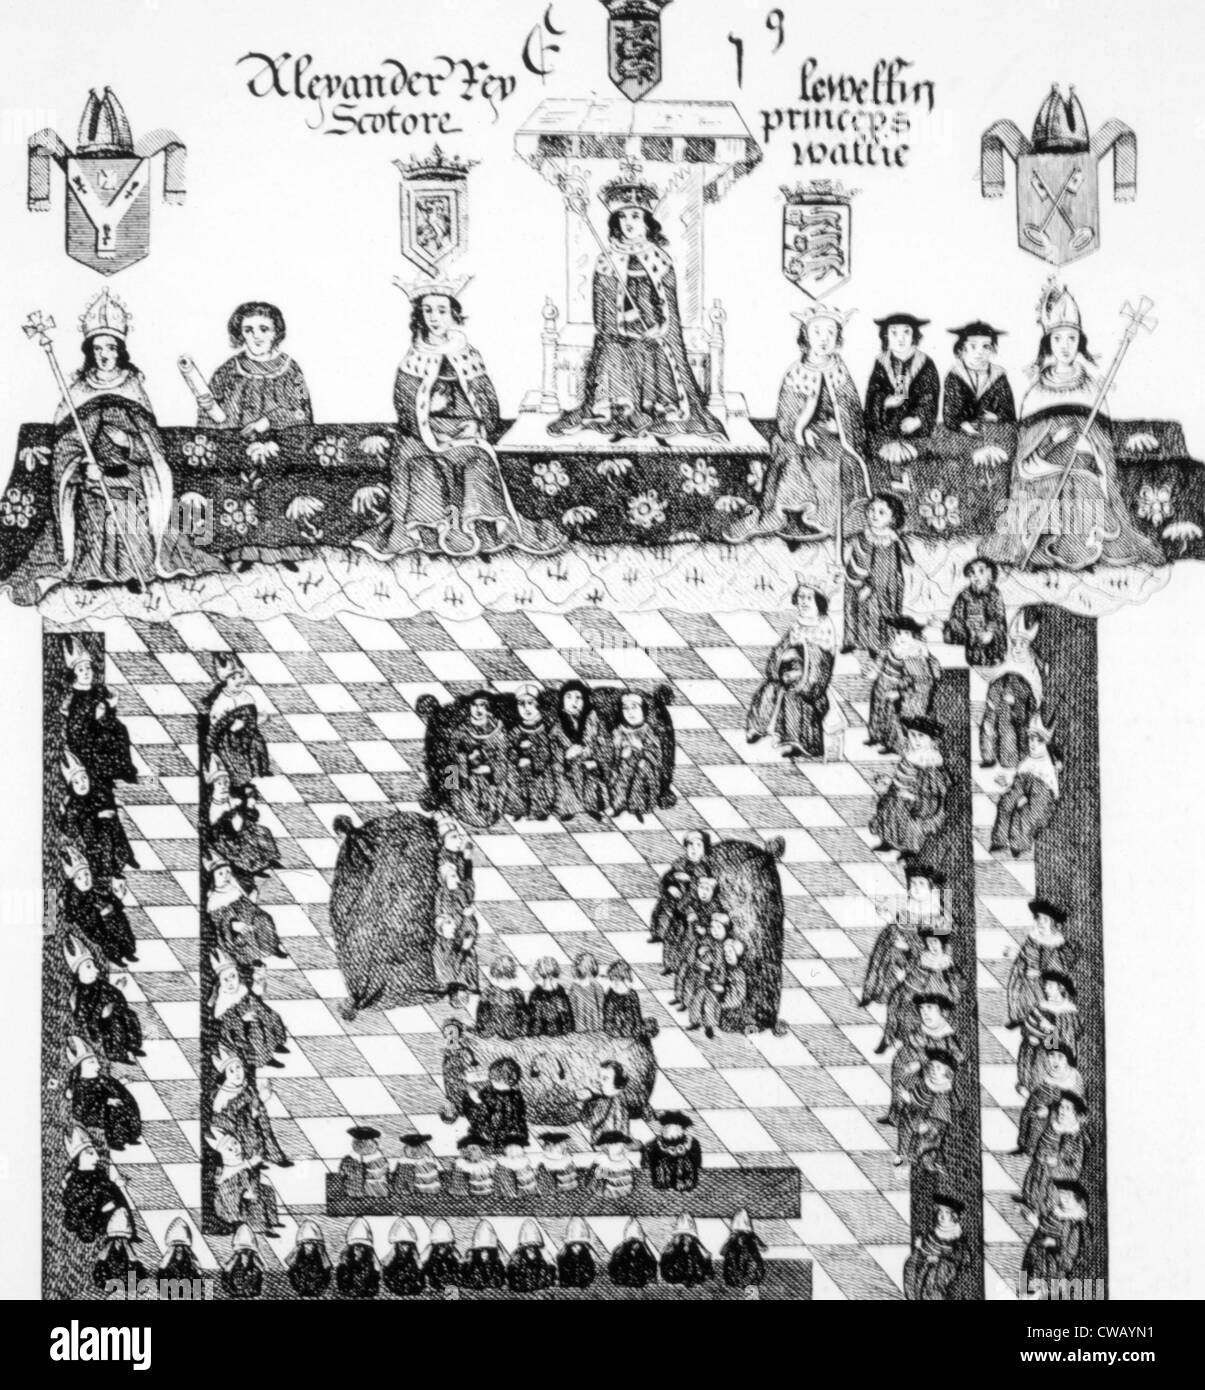 Alexander Rey
Scotore
Lewellin
princeps
Wallie
alamy
Image ID: CWAYN1
www.alamy.com